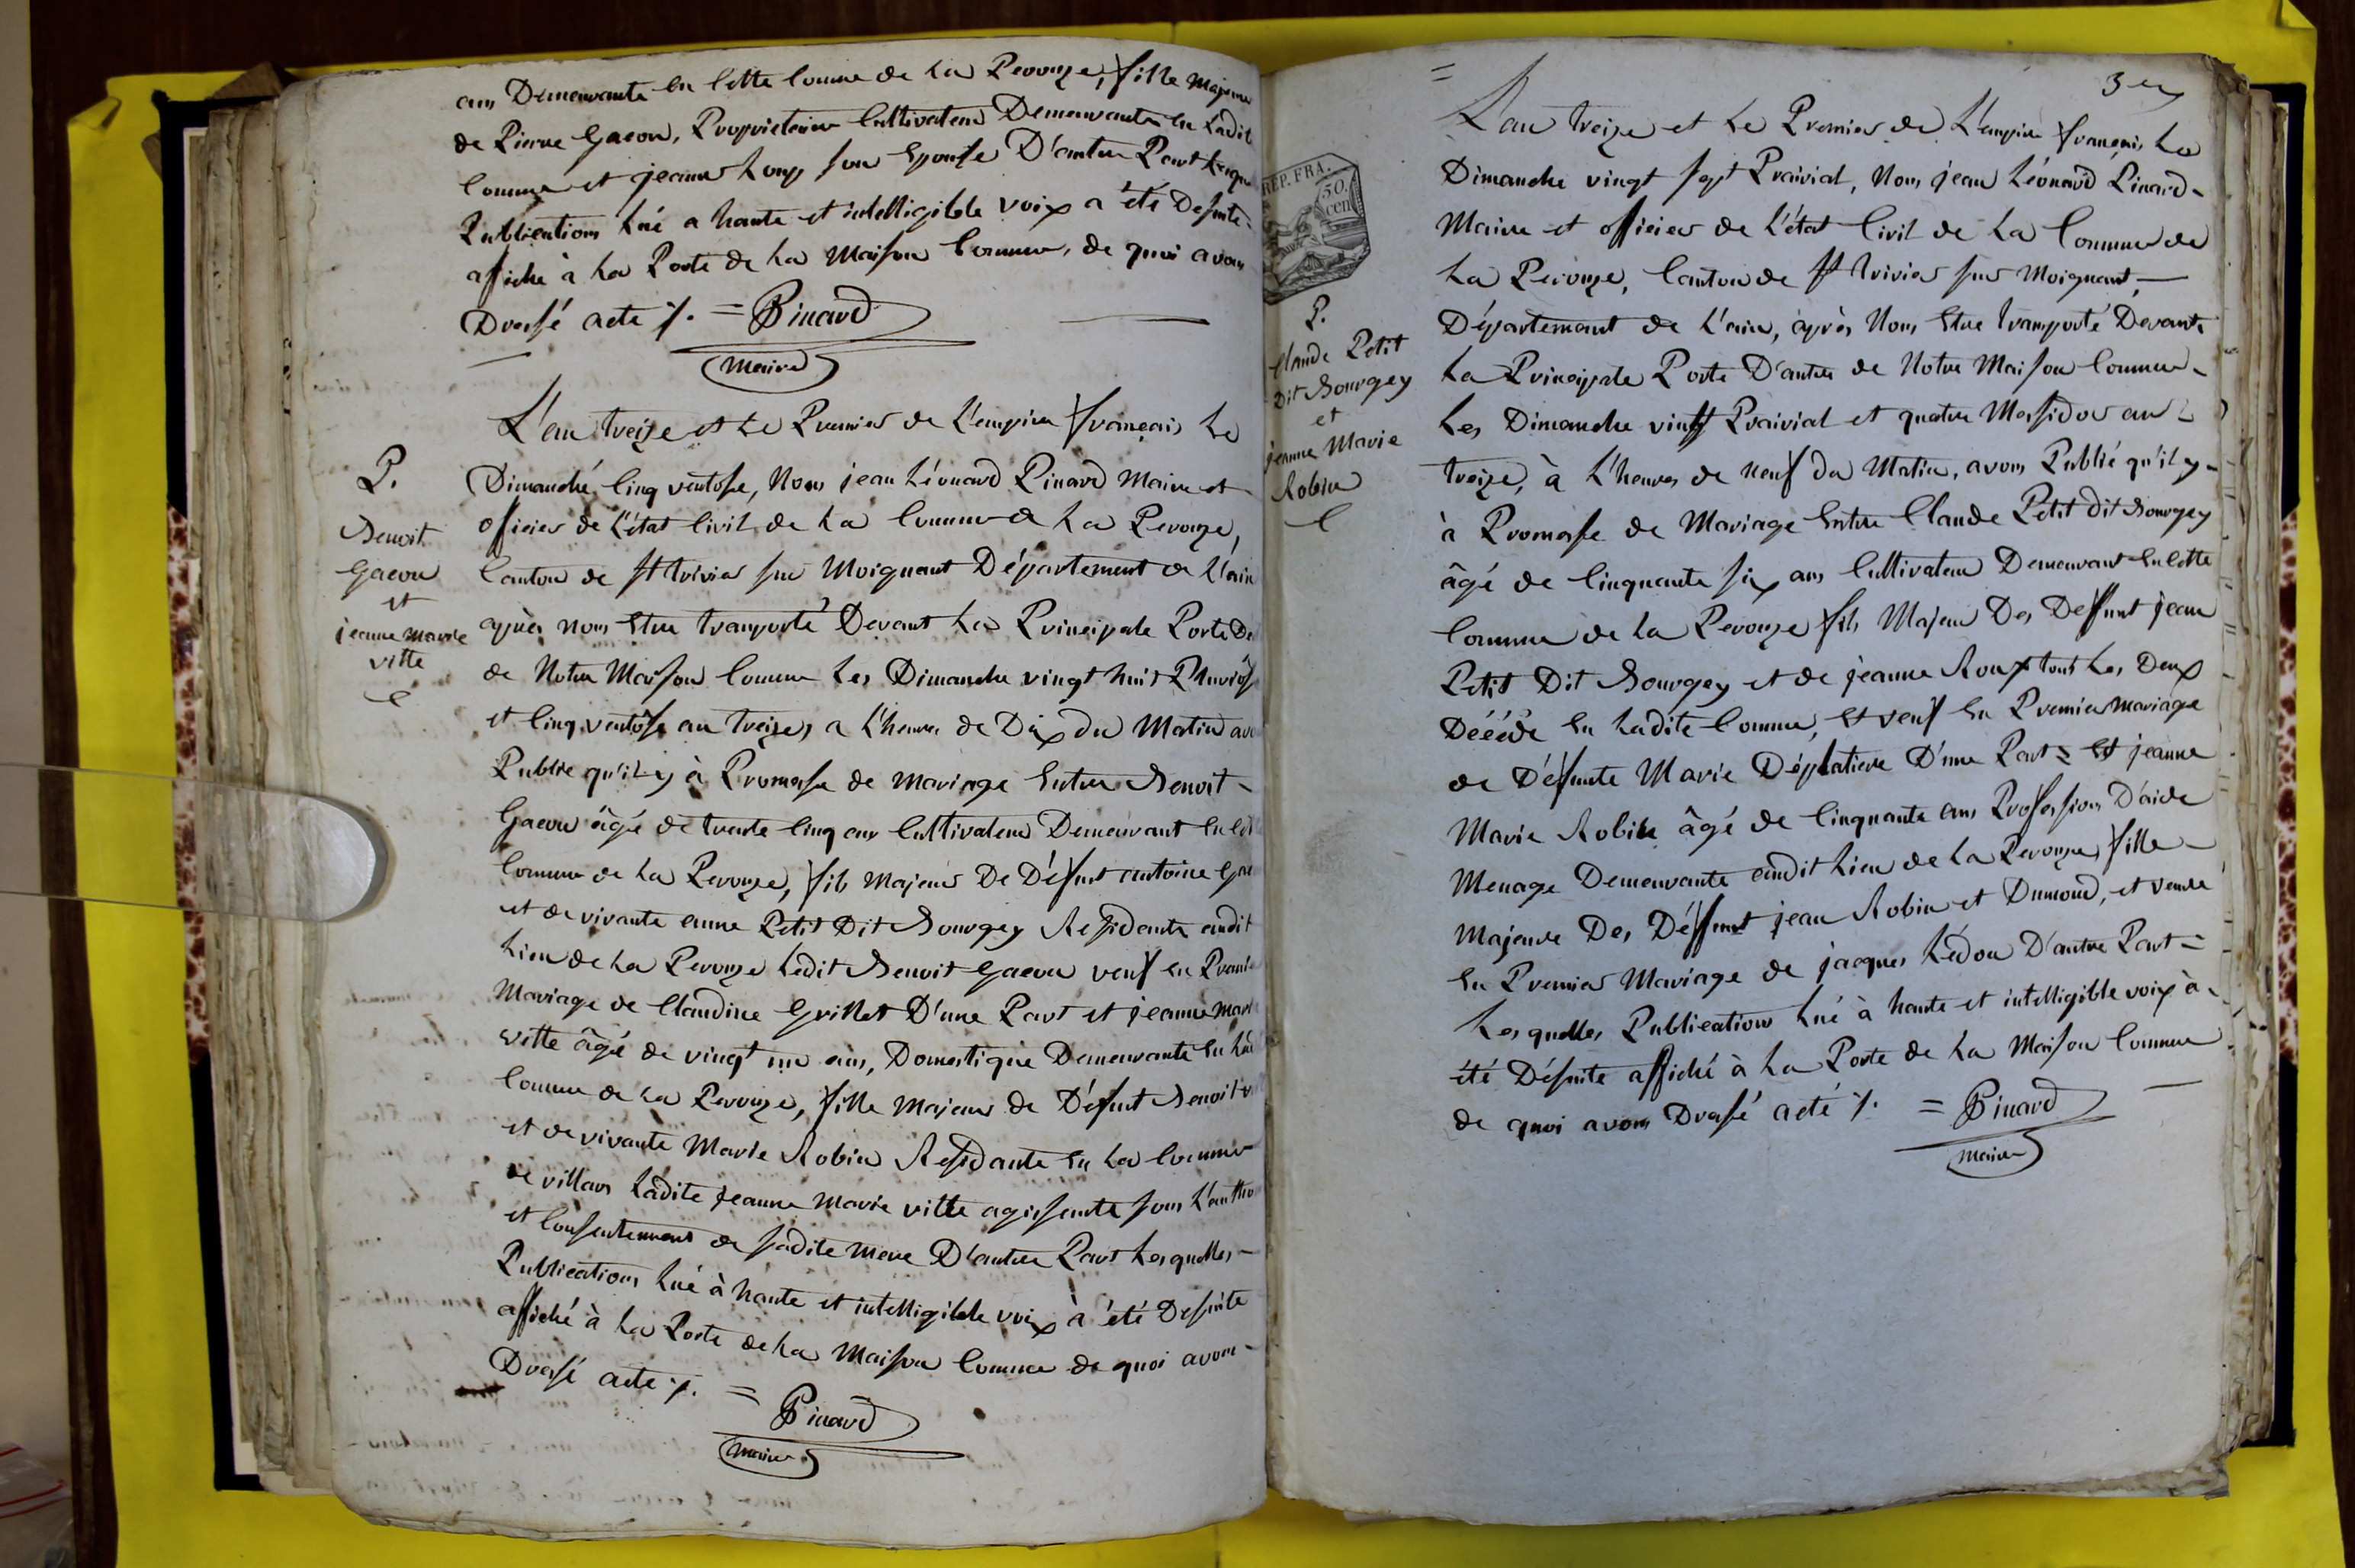 ans Demeurante en Cette Comune de La Perouze, fille Majeure
de Pierre Gacon, Proprietaire Cultivateur Demeurante en Ladit
Comune et jeanne Loup son Epouse D'autre Part
Publications Lué a haute et intelligible voix a été Desuite
affiché à La Porte de La Maison Commune, de quoi avons
Dressé acte ./. = Pinard
Maire
L'an treize et Le Premier de L'empire français Le
Dimanche Cinq ventose, Nous jean Léonard Pinard Maire et
officier de L'état Civil de La Comune de La Perouze,
Canton de St trivier sur Moignant Département de L'ain
après nous Etre transporté Devant La Principale Porte
de Notre Maison Comune Les Dimanche vingt huit Pluviôse
et Cinq ventôse an treize, a L'heure de Dix du Matin
Publié qu'il y à Promesse de Mariage Entre Benoit
Gacon âgé de trente Cinq ans Cultivateur Demeurant
Comune de La Perouze, fils Majeur De Défunt antoine
et de vivante anne Petit Dit Bourgey Residante audit
Lieu de La Perouze Ledit Benoit Gacon veuf en
Mariage de Claudine Grillet D'une Part et jeanne Marie
vitte âgé de vingt un ans, Domestique Demeurante en
Comune de La Perouze, fille Majeure de Défunt Benoit
et de vivante Marie Robin Residante en La Comune
de villars Ladite jeanne Marie vitte agissante sous
et Consentement de sadite Mere D'autre Part Lesquelles
Publications Lué à haute et intelligible voix à été Desuite
affiché à La Porte de La Maison Comune de quoi avons
Dressé acte ./. = Pinard
Maire
P.
Benoit
Gacon
et
jeanne Marie
vitte
3
L'an treize et Le Premier de L'empire français Le
Dimanche vingt sept Prairial, Nous jean Léonard Pinard
Maire et officier de L'état Civil de La Comune de
La Perouze, Canton de St trivier sur Moignant,
Département de L'ain, après Nous Etre transporté Devant
La Principale Porte D'antré de Notre Maison Comune
Les Dimanche Prairial et quatre Messidor an
treize, à L'heure de Neuf du Matin, avons Publié qu'il y
à Promesse de Mariage Entre Claude Petit dit Bourgey
âgé de Cinquante six ans Cultivateur Demeurant En Cette
Comune de La Perouze fils Majeur Des Deffunt jean
Petit Dit Bourgey et de jeanne Roux tous Les Deux
Décédé En Ladite Comune, Et veuf En Premier Mariage
de Défunte Marie Déplatiere D'une Part = Et jeanne
Marie Robin âgé de Cinquante ans Profession D'aide
Menage Demeurante audit Lieu de La Perouze, fille
Majeure Des Défunt jean Robin et Dumond, et veuve
En Premier Mariage de jacques Lédon D'autre Part =
Lesquelles Publications Lué à haute et intelligible voix à
été Désuite affiché à La Porte de La Maison Comune
de quoi avons Dressé acté ./. = Pinard
Maire
REP. FRA.
50.
cen
P.
Claude Petit
Dit Bourgey
et
jeanne Marie
Robin